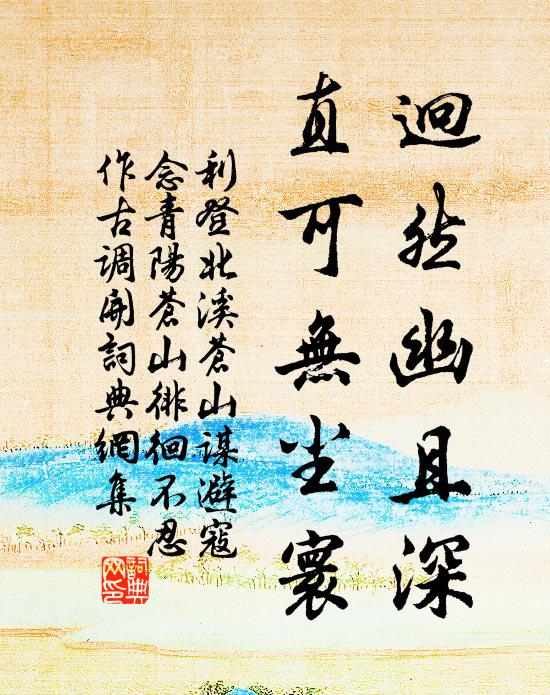 迥然幽且深
直可無尘寰
利登北溪蒼山謀避寇
念青陽蒼山徘徊不忍
作古調開詞典網集
詞典
网印